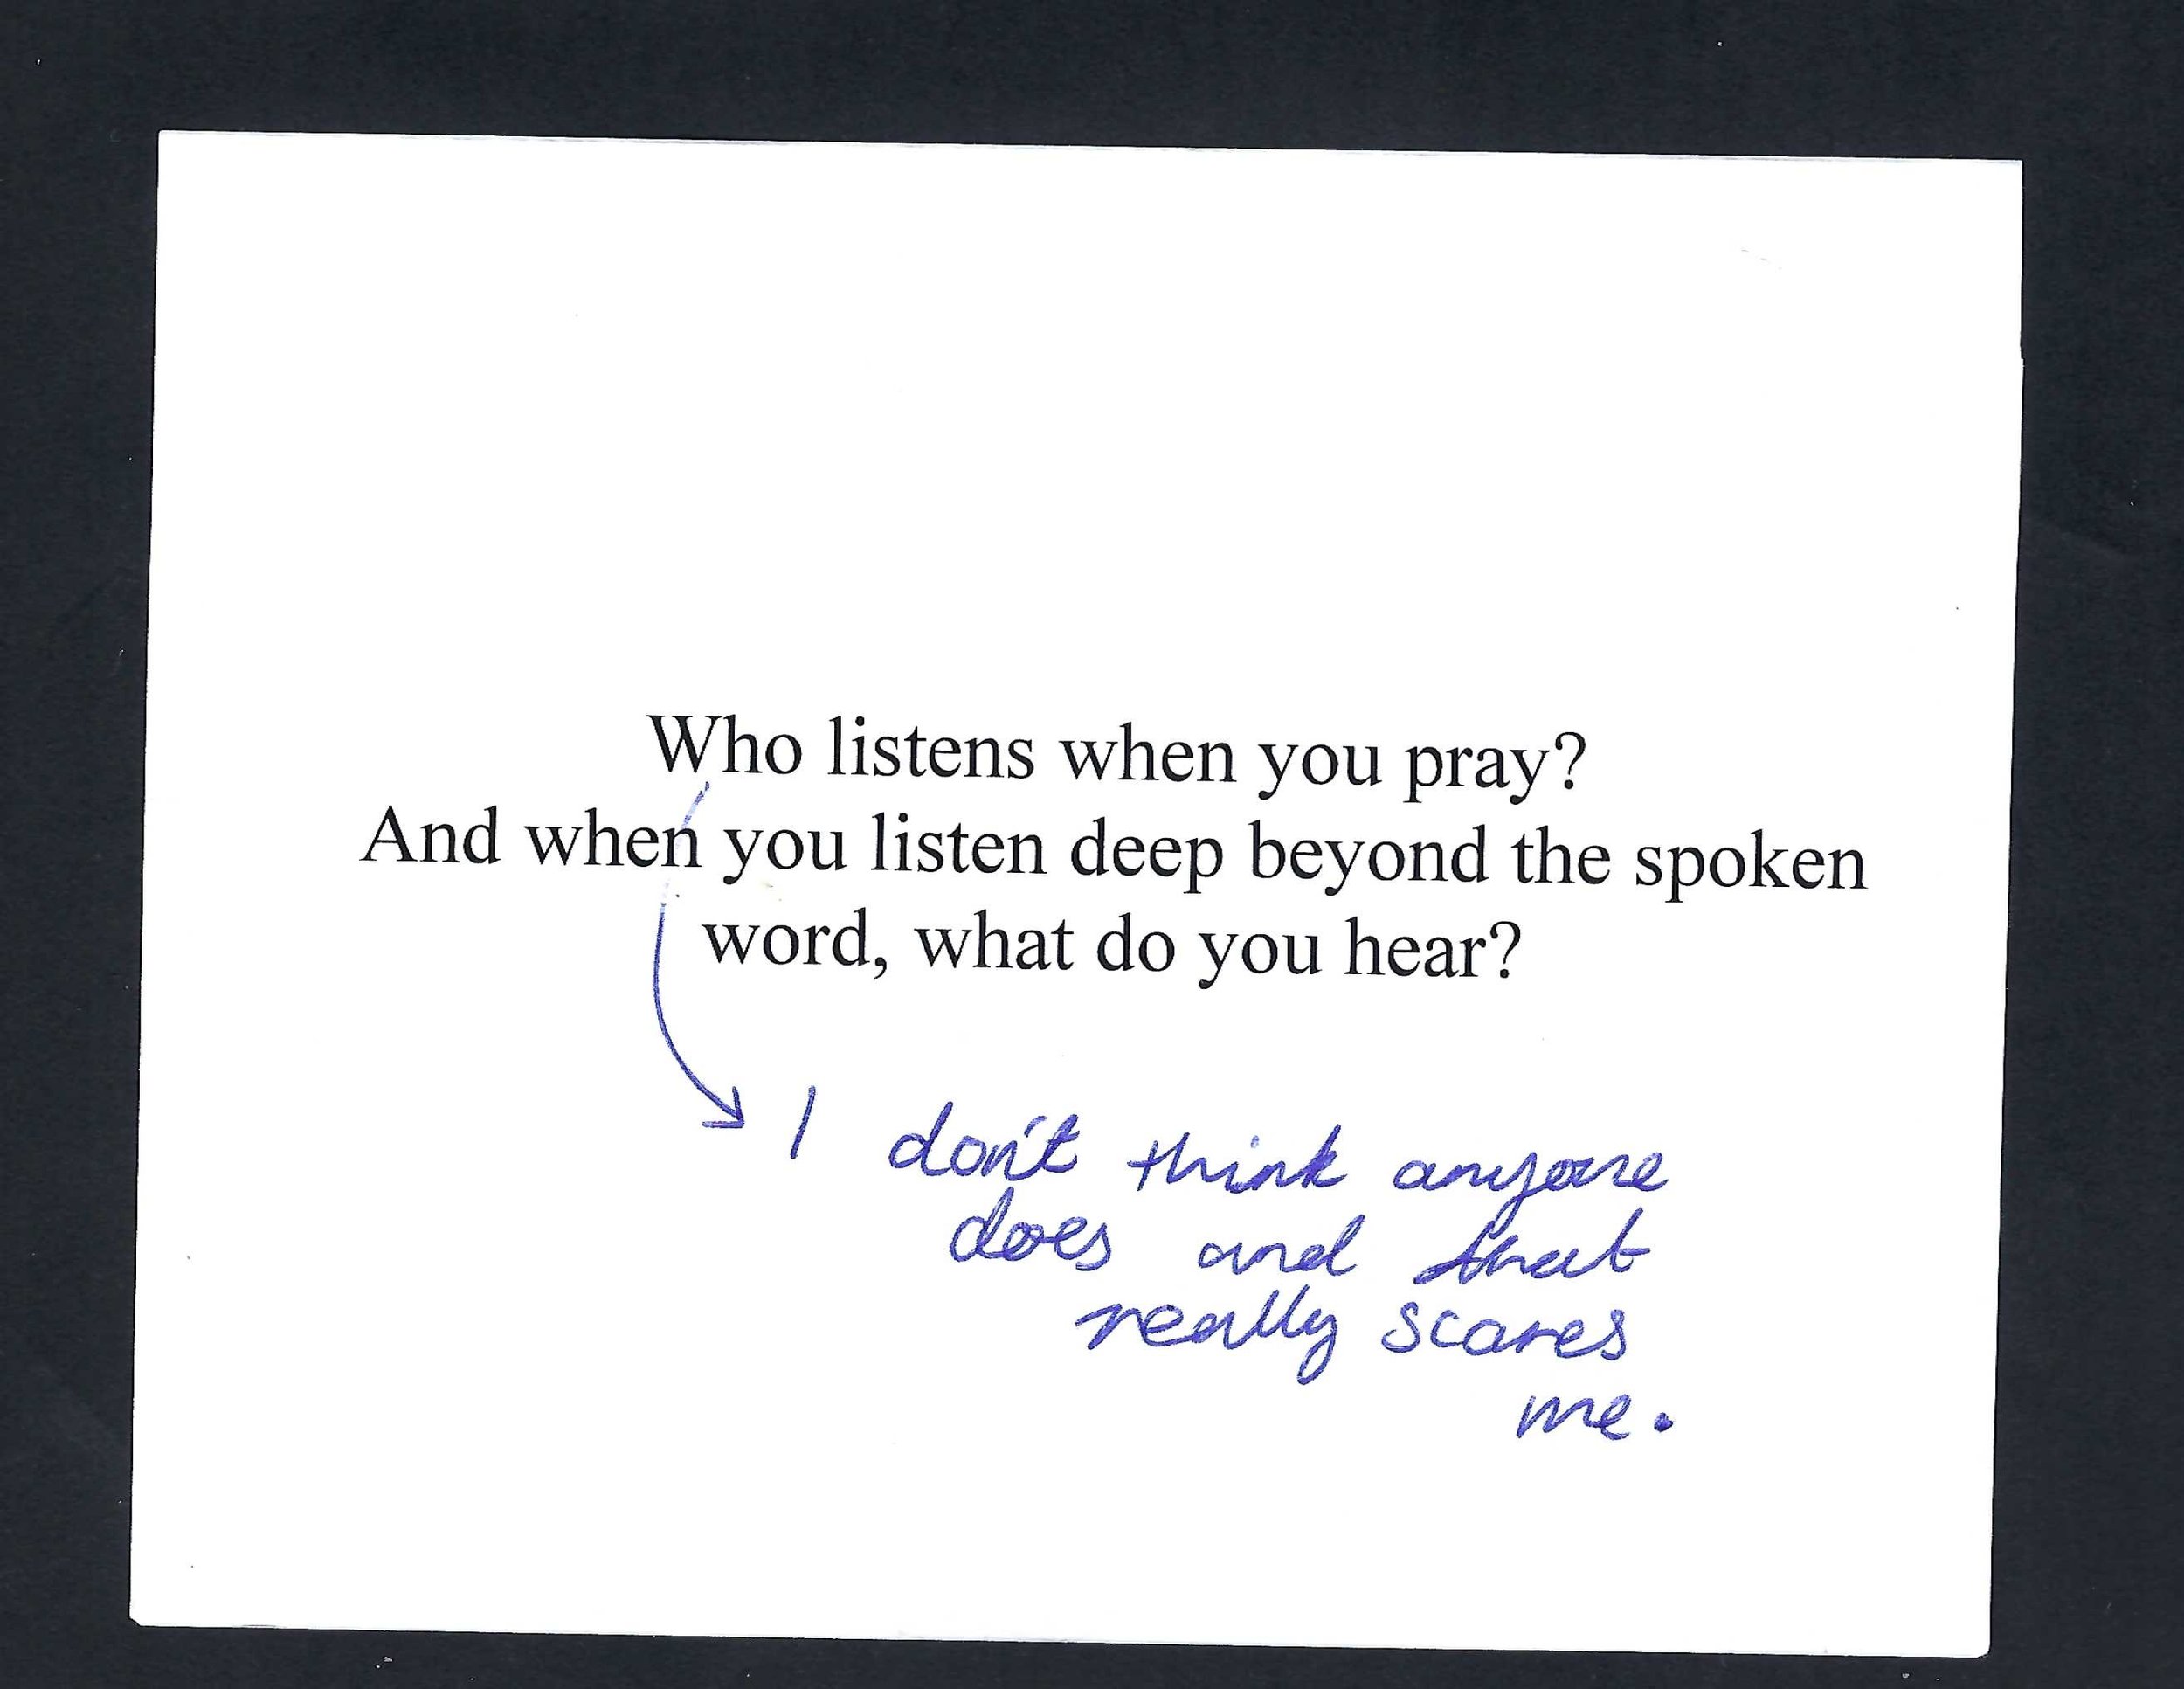 Who listens when you pray?
And when you listen deep beyond the spoken
word, what do you hear?
I don't think anyone
does and that
really scares
me.